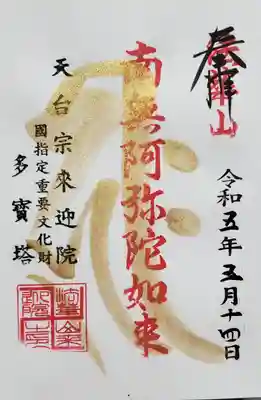 奉拝
山
令和五年五月十四日
南無阿弥陀如來
天台宗來迎院
國指定重要文化財
多寶塔